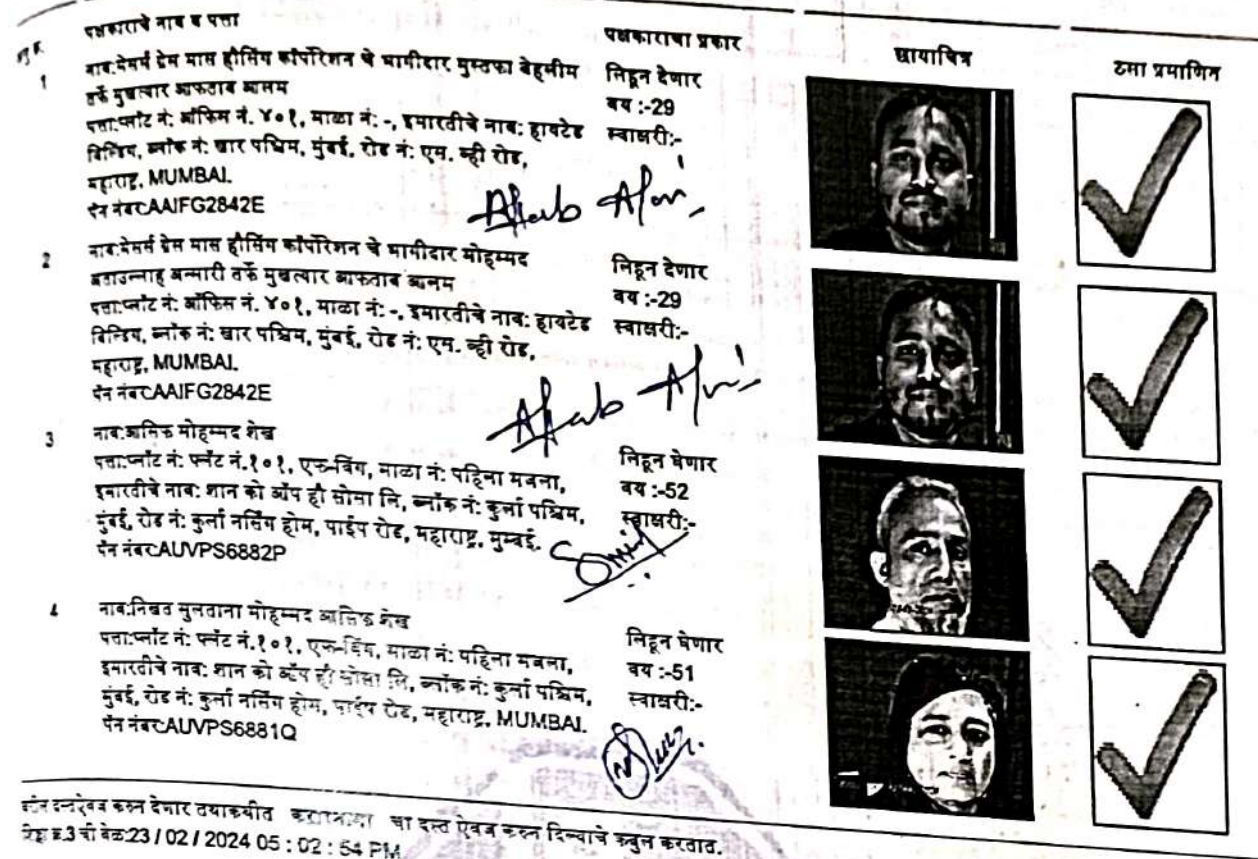 अनु क्र. पक्षकाराचे नाव व पत्ता पक्षकाराचा प्रकार छायाचित्र ठसा प्रमाणित
1 नाव:मेसर्स प्रेम मास हौसिंग कॉर्पोरेशन चे भागीदार मुस्तफा बेहमीम
तर्फे मुखत्यार आफताब आलम
पत्ता:प्लॉट नं: ऑफिस नं. ४०१, माळा नं: -, इमारतीचे नाव: हायटेड
बिल्डिंग, ब्लॉक नं: खार पश्चिम, मुंबई, रोड नं: एम. व्ही रोड,
महाराष्ट्र, MUMBAI.
पॅन नंबर:AAIFG2842E
लिहून देणार
वय :-29
स्वाक्षरी:-
Aftab Alam
2 नाव:मेसर्स प्रेम मास हौसिंग कॉर्पोरेशन चे भागीदार मोहम्मद
अताउल्लाह अन्सारी तर्फे मुखत्यार आफताब आलम
पत्ता:प्लॉट नं: ऑफिस नं. ४०१, माळा नं: -, इमारतीचे नाव: हायटेड
बिल्डिंग, ब्लॉक नं: खार पश्चिम, मुंबई, रोड नं: एम. व्ही रोड,
महाराष्ट्र, MUMBAI.
पॅन नंबर:AAIFG2842E
लिहून देणार
वय :-29
स्वाक्षरी:-
Aftab Alam
3 नाव:आसिफ मोहम्मद शेख
पत्ता:प्लॉट नं: फ्लॅट नं.१०१, एफ-विंग, माळा नं: पहिला मजला,
इमारतीचे नाव: शान को ऑप हौ सोसा लि, ब्लॉक नं: कुर्ला पश्चिम,
मुंबई, रोड नं: कुर्ला नर्सिंग होम, पाईप रोड, महाराष्ट्र, मुम्बई.
पॅन नंबर:AUVPS6882P
लिहून घेणार
वय :-52
स्वाक्षरी:-
4 नाव:निखत सुलताना मोहम्मद आसिफ शेख
पत्ता:प्लॉट नं: फ्लॅट नं.१०१, एफ-विंग, माळा नं: पहिला मजला,
इमारतीचे नाव: शान को ऑप हौ सोसा लि, ब्लॉक नं: कुर्ला पश्चिम,
मुंबई, रोड नं: कुर्ला नर्सिंग होम, पाईप रोड, महाराष्ट्र, MUMBAI.
पॅन नंबर:AUVPS6881Q
लिहून घेणार
वय :-51
स्वाक्षरी:-
वरील दस्तऐवज करुन देणार तथाकथीत करारनामा चा दस्त ऐवज करुन दिल्याचे कबुल करतात.
शिक्का क्र.3 ची वेळ:23 / 02 / 2024 05 : 02 : 54 PM